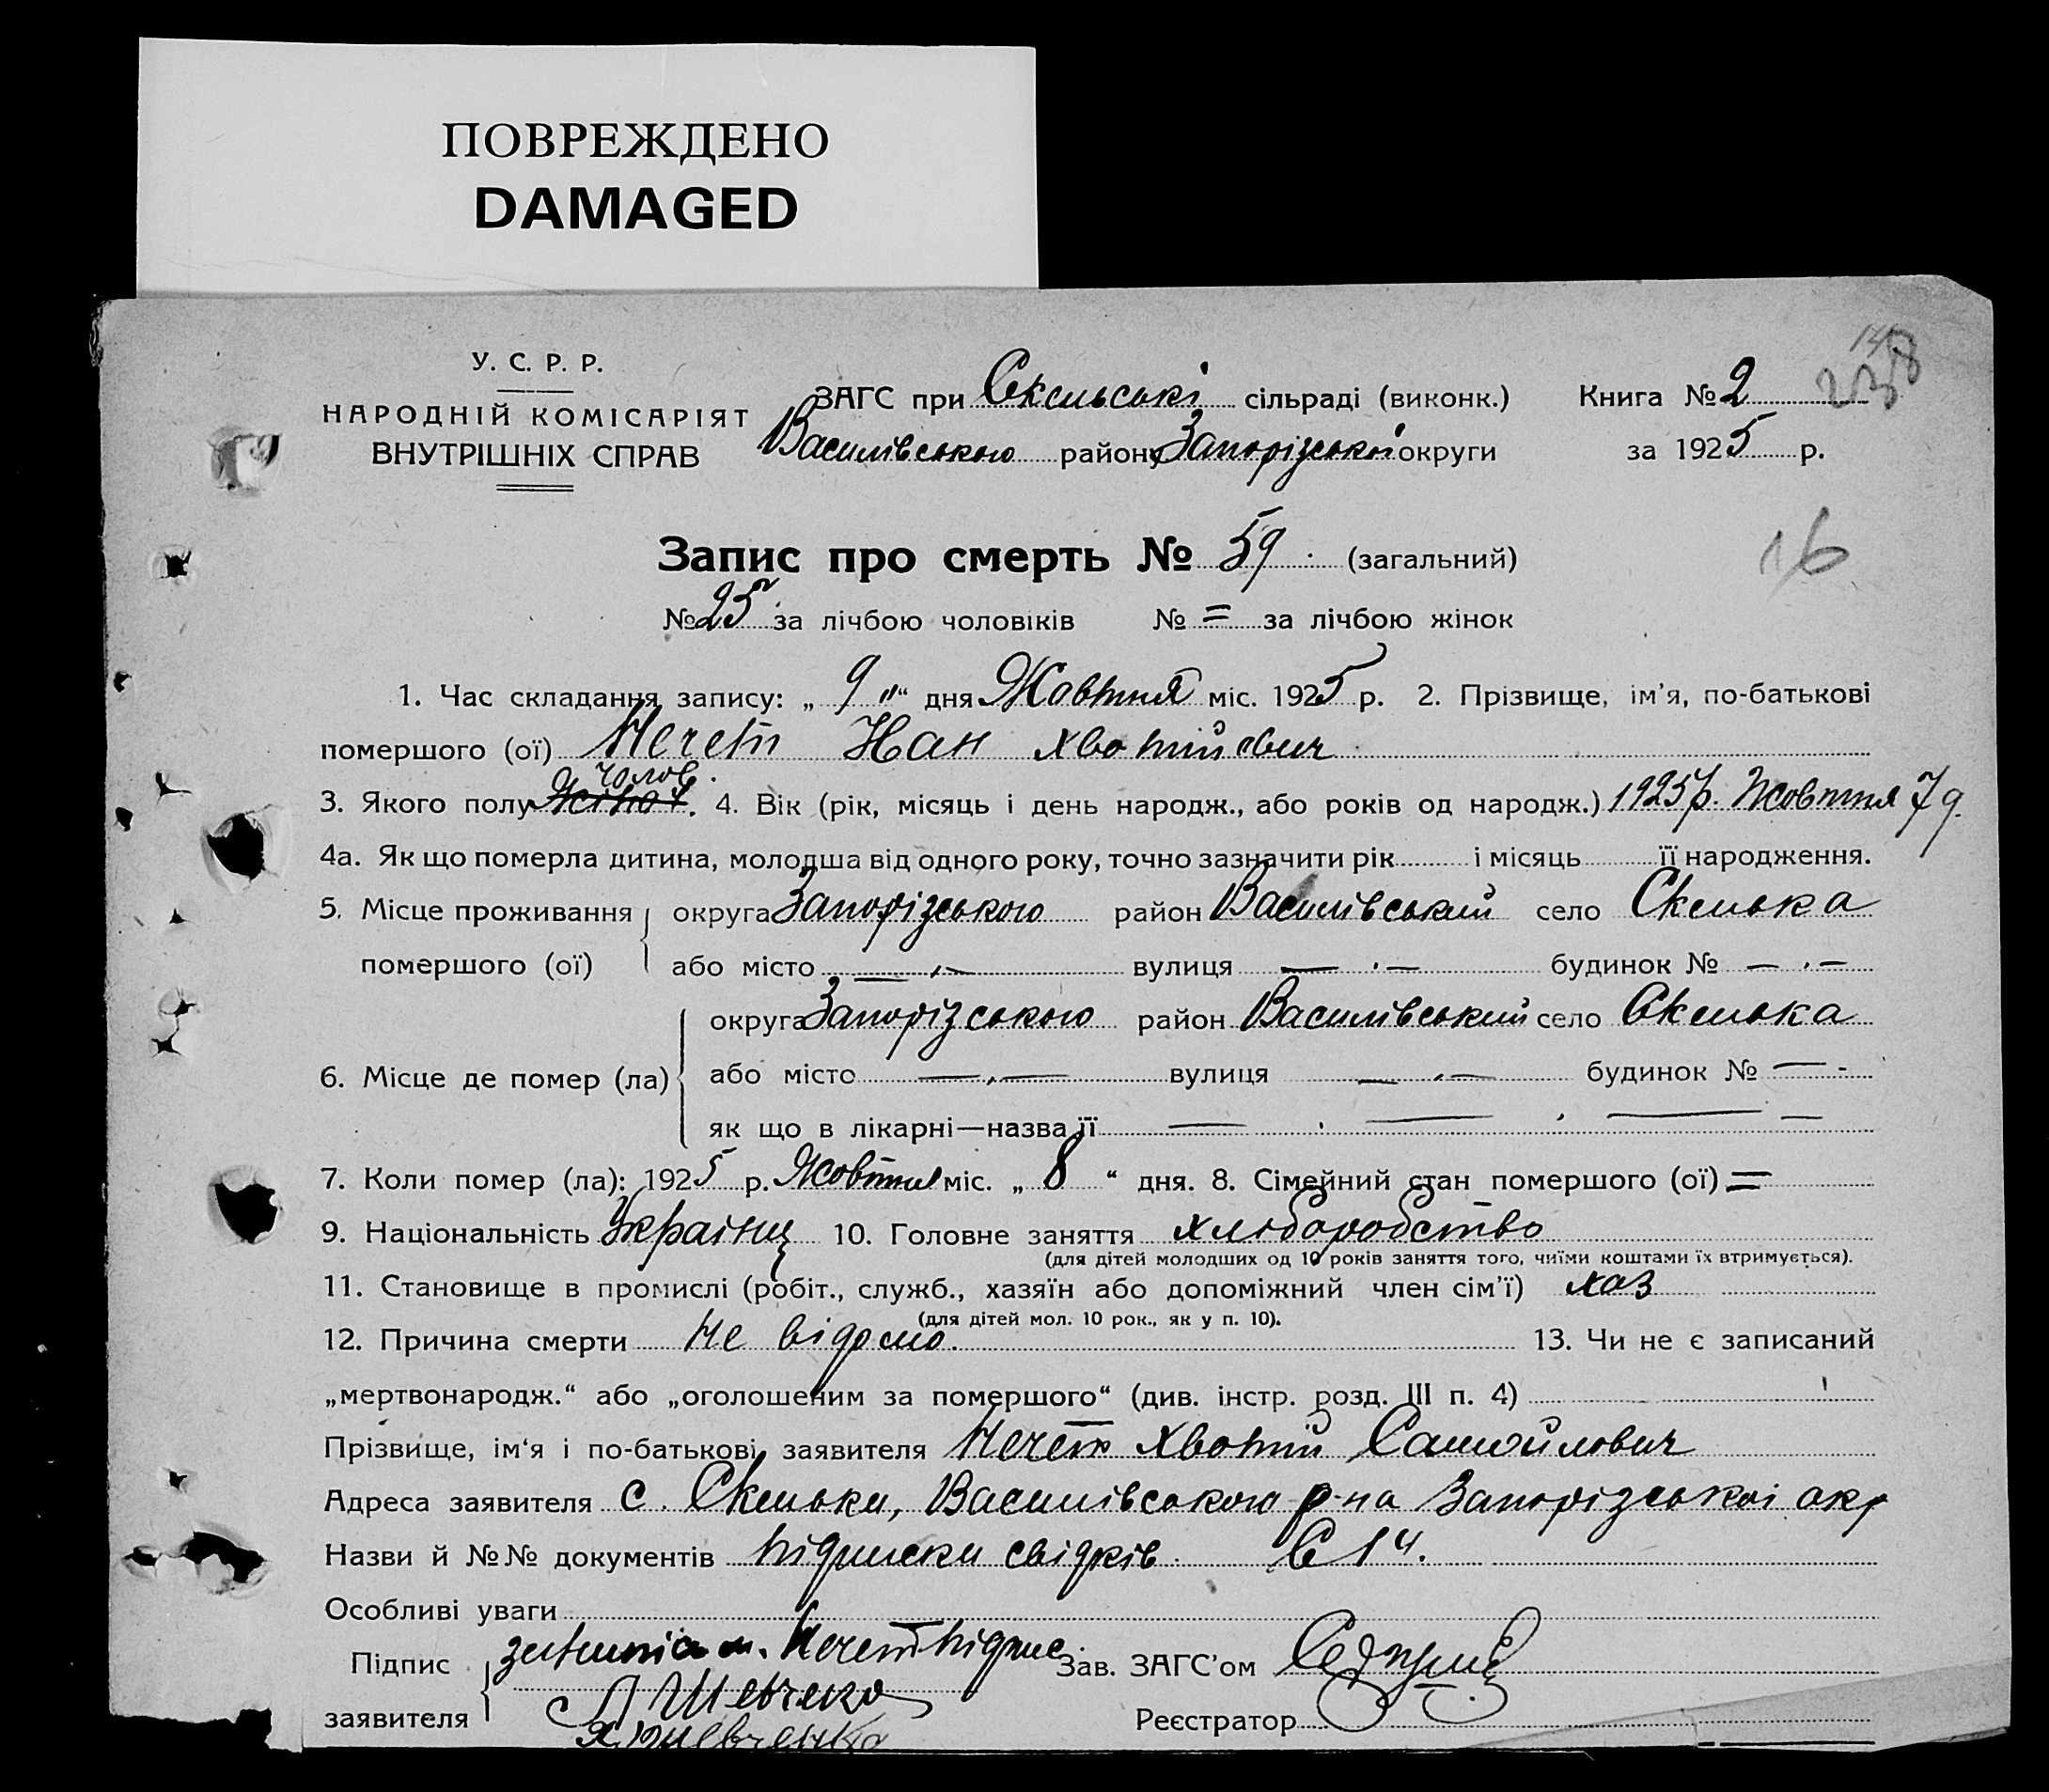 ПОВРЕЖДЕНО
DAMAGED
У. С. Р. Р.
НАРОДНІЙ КОМІСАРІЯТ
ВНУТРІШНІХ СПРАВ
ЗАГС при Скельські сільраді (виконк.)
Василівського району Запорізської округи
Книга № 2
за 1925 р.
Запис про смерть № 59. (загальний)
16
№ 25 за лічбою чоловіків № = за лічбою жінок
1. Час складання запису: „ 9 “ дня Жовтня міс. 1925 р. 2. Прізвище, ім’я, по-батькові
помершого (ої) Нечет Іван Хвотійович
чолов.
3. Якого полу 4. Вік (рік, місяць і день народж., або років од народж.) 1925 р. Жовтня 7 д.
4а. Як що померла дитина, молодша від одного року, точно зазначити рік і місяць її народження.
5. Місце проживання округа Запорізського район Василівський село Скелька
помершого (ої) або місто — „ — вулиця — „ — будинок № — „ —
округа Запорізського район Василівський село Скелька
6. Місце де помер (ла) або місто — „ — вулиця — „ — будинок № — -
як що в лікарні—назва її
7. Коли помер (ла): 1925 р. Жовтня міс. „ 8 “ дня. 8. Сімейний стан помершого (ої) =
9. Національність Українц 10. Головне заняття хліборобство
(для дітей молодших од 10 років заняття того, чиїми коштами їх втримується).
11. Становище в промислі (робіт., служб., хазяїн або допоміжний член сім’ї) хаз
(для дітей мол. 10 рок., як у п. 10).
12. Причина смерти Не відомо. 13. Чи не є записаний
„мертвонародж.“ або „оголошеним за помершого“ (див. інстр. розд. III п. 4)
Прізвище, ім‘я і по-батькові заявителя Нечет Хвотій Самойлович
Адреса заявителя с. Скельки, Василівського р-на Запорізської окр
Назви й №№ документів підписки свідків
Особливі уваги
Підпис Нечет підпис Зав. ЗАГС’ом
заявителя Шевчеко Реєстратор
Шевченко